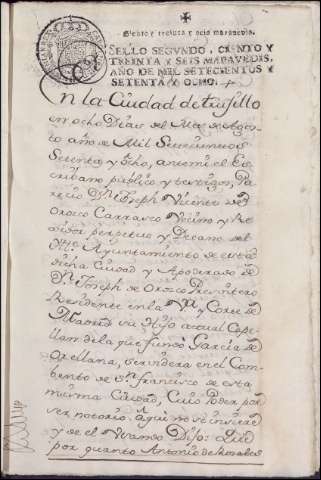 Ciento y treinta y seis maravedis.
SELLO SEGVNDO, CIENTO Y
TREINTA Y SEIS MARAVEDIS,
AÑO DE MIL SETECIENTOS Y
SETENTA Y OCHO.
En la Ciudad de trugillo
en ocho Dias del Mes de Agos
to año de Mil Setecientos
Setenta y Ocho, ante mi el Es
cribano publico y testigos, Pa
recio Dn Joseph Vicente de
Orozco Carrasco Vecino y Re
gidor perpetuo y Decano del
Ayuntamiento de esta
dicha Ciudad y Apoderado de
Dn Joseph de Orozco Presvitero
Residente en la Va y Corte de
Madrid su Hijo actual Cape
llan de la que fundo Garcia de
Orellana, servidera en el Com
bento de Sn francisco de esta
misma Ciudad, Cuio Poder por
ser notorio aqui no se inserta
y de el Usando Dijo: Que
por quanto Antonio de Morales